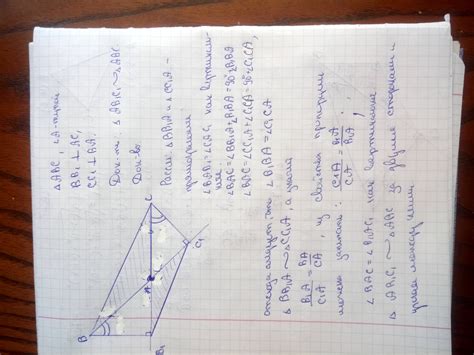 △ABC, ∠A тупой
BB₁ ⊥ AC,
CC₁ ⊥ BA.
Док-ть: △AB₁C₁ ∼ △ABC
Док-во
Рассм. △BB₁A и △CC₁A –
прямоугольн.
∠BAB₁ = ∠CAC₁ как вертикаль-
ные.
∠BAC = ∠BB₁A + ∠B₁BA = 90° + ∠B₁BA
∠BAC = ∠CC₁A + ∠C₁CA = 90° + ∠C₁CA,
отсюда следует, что ∠B₁BA = ∠C₁CA
△BB₁A ∼ △CC₁A, а значит
B₁A / C₁A = BA / CA, из свойства пропорции
можно записать: C₁A / CA = B₁A / BA;
∠BAC = ∠B₁AC₁ как вертикальные
△AB₁C₁ ∼ △ABC по двум сторонам и
углам между ними
B
C
A
B₁
C₁